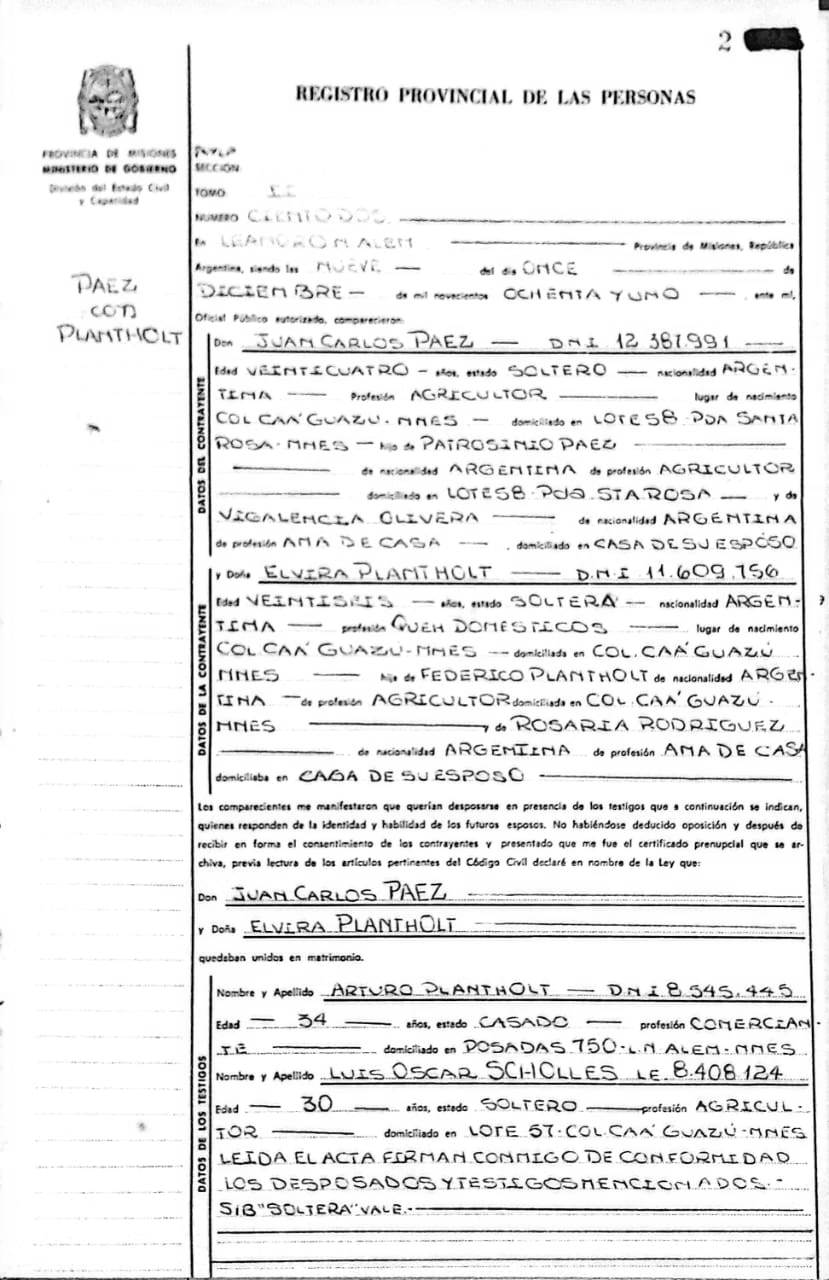 2
REGISTRO PROVINCIAL DE LAS PERSONAS
PROVINCIA DE MISIONES
MINISTERIO DE GOBIERNO
División del Estado Civil
y Capacidad
PAEZ
CON
PLANTHOLT
SECCION
TOMO II
NUMERO CIENTO DOS
En LEANDRO N ALEM Provincia de Misiones, República
Argentina, siendo las NUEVE del dia ONCE de
DICIEMBRE de mil novecientos OCHENTA Y UNO, ante mi,
Oficial Público autorizado, comparecieron:
DATOS DEL CONTRAYENTE
Don JUAN CARLOS PAEZ — D N I 12 387.991
Edad VEINTICUATRO — años, estado SOLTERO — nacionalidad ARGEN-
TINA — Profesión AGRICULTOR lugar de nacimiento
COL CAÁ GUAZÚ - MNES — domiciliado en LOTE 58 PDA SANTA
ROSA - MNES — hijo de PATROSINIO PAEZ
de nacionalidad ARGENTINA de profesión AGRICULTOR
domiciliado en LOTE 58 PDA STA ROSA — y de
VIGALENCIA OLIVERA de nacionalidad ARGENTINA
de profesión AMA DE CASA — , domiciliado en CASA DE SU ESPOSO
DATOS DE LA CONTRAYENTE
y Doña ELVIRA PLANTHOLT — D.N.I 11.609.756
Edad VEINTISEIS — años, estado SOLTERA — nacionalidad ARGEN-
TINA — profesión QUEH DOMESTICOS — lugar de nacimiento
COL CAÁ GUAZU - MNES — domiciliada en COL. CAÁ GUAZÚ
MNES — hija de FEDERICO PLANTHOLT de nacionalidad ARGEN-
TINA — de profesión AGRICULTOR domiciliada en COL. CAÁ GUAZÚ -
MNES y de ROSARIA RODRIGUEZ
de nacionalidad ARGENTINA de profesión AMA DE CASA
domiciliaba en CASA DE SU ESPOSO
Los comparecientes me manifestaron que querían desposarse en presencia de los testigos que a continuación se indican,
quienes responden de la identidad y habilidad de los futuros esposos. No habiéndose deducido oposición y después de
recibir en forma el consentimiento de los contrayentes y presentado que me fue el certificado prenupcial que se ar-
chiva, previa lectura de los artículos pertinentes del Código Civil declaré en nombre de la Ley que:
Don JUAN CARLOS PAEZ
y Doña ELVIRA PLANTHOLT
quedaban unidos en matrimonio.
DATOS DE LOS TESTIGOS
Nombre y Apellido ARTURO PLANTHOLT — D N I 8 545.445
Edad — 34 — años, estado CASADO — profesión COMERCIAN-
TE — domiciliado en POSADAS 750 - L.N ALEM - MNES
Nombre y Apellido LUIS OSCAR SCHOLLES LE 8.408 124
Edad — 30 — años, estado SOLTERO — profesión AGRICUL-
TOR — domiciliado en LOTE 57 - COL CAÁ GUAZÚ - MNES
LEIDA EL ACTA FIRMAN CONMIGO DE CONFORMIDAD
LOS DESPOSADOS Y TESTIGOS MENCIONADOS.-
S/B "SOLTERA" VALE.-